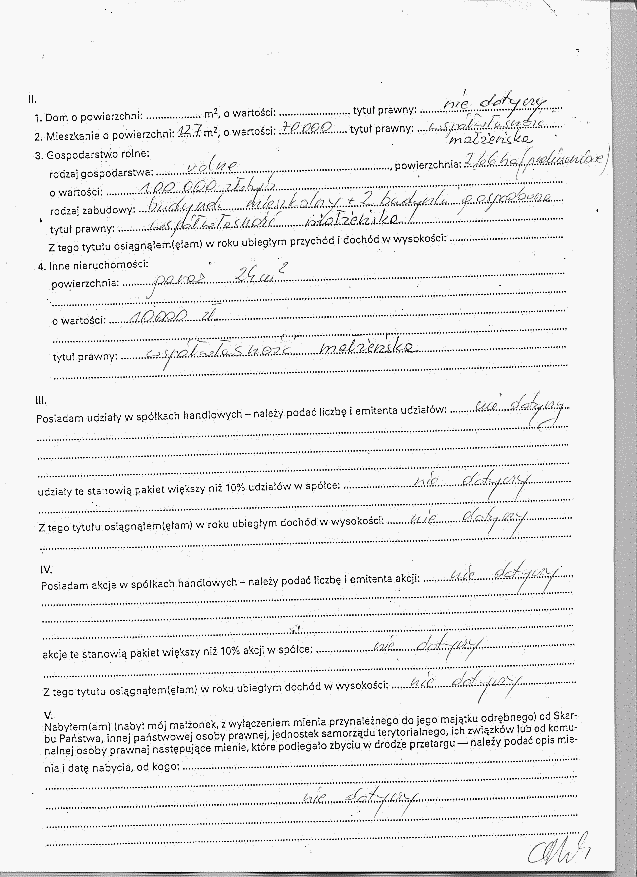 II.
1. Dom o powierzchni: ................ m², o wartości: ................ tytuł prawny: nie dotyczy
2. Mieszkanie o powierzchni: 127 m², o wartości: 70 000 tytuł prawny: współwłasność
małżeńska
3. Gospodarstwo rolne:
rodzaj gospodarstwa: rolne, powierzchnia: 2,66 ha
o wartości: 100 000 złotych
rodzaj zabudowy: budynek mieszkalny + 2 budynki gospodarcze
tytuł prawny: współwłasność małżeńska
Z tego tytułu osiągnąłem(ęłam) w roku ubiegłym przychód i dochód w wysokości:
4. Inne nieruchomości:
powierzchnia: garaż 24 m²
o wartości: 10000 zł
tytuł prawny: współwłasność małżeńska
III.
Posiadam udziały w spółkach handlowych – należy podać liczbę i emitenta udziałów: nie dotyczy
udziały te stanowią pakiet większy niż 10% udziałów w spółce: nie dotyczy
Z tego tytułu osiągnąłem(ęłam) w roku ubiegłym dochód w wysokości: nie dotyczy
IV.
Posiadam akcje w spółkach handlowych – należy podać liczbę i emitenta akcji: nie dotyczy
akcje te stanowią pakiet większy niż 10% akcji w spółce: nie dotyczy
Z tego tytułu osiągnąłem(ęłam) w roku ubiegłym dochód w wysokości: nie dotyczy
V.
Nabyłem(am) (nabył mój małżonek, z wyłączeniem mienia przynależnego do jego majątku odrębnego) od Skar-
bu Państwa, innej państwowej osoby prawnej, jednostek samorządu terytorialnego, ich związków lub od komu-
nalnej osoby prawnej następujące mienie, które podlegało zbyciu w drodze przetargu — należy podać opis mie-
nia i datę nabycia, od kogo:
nie dotyczy